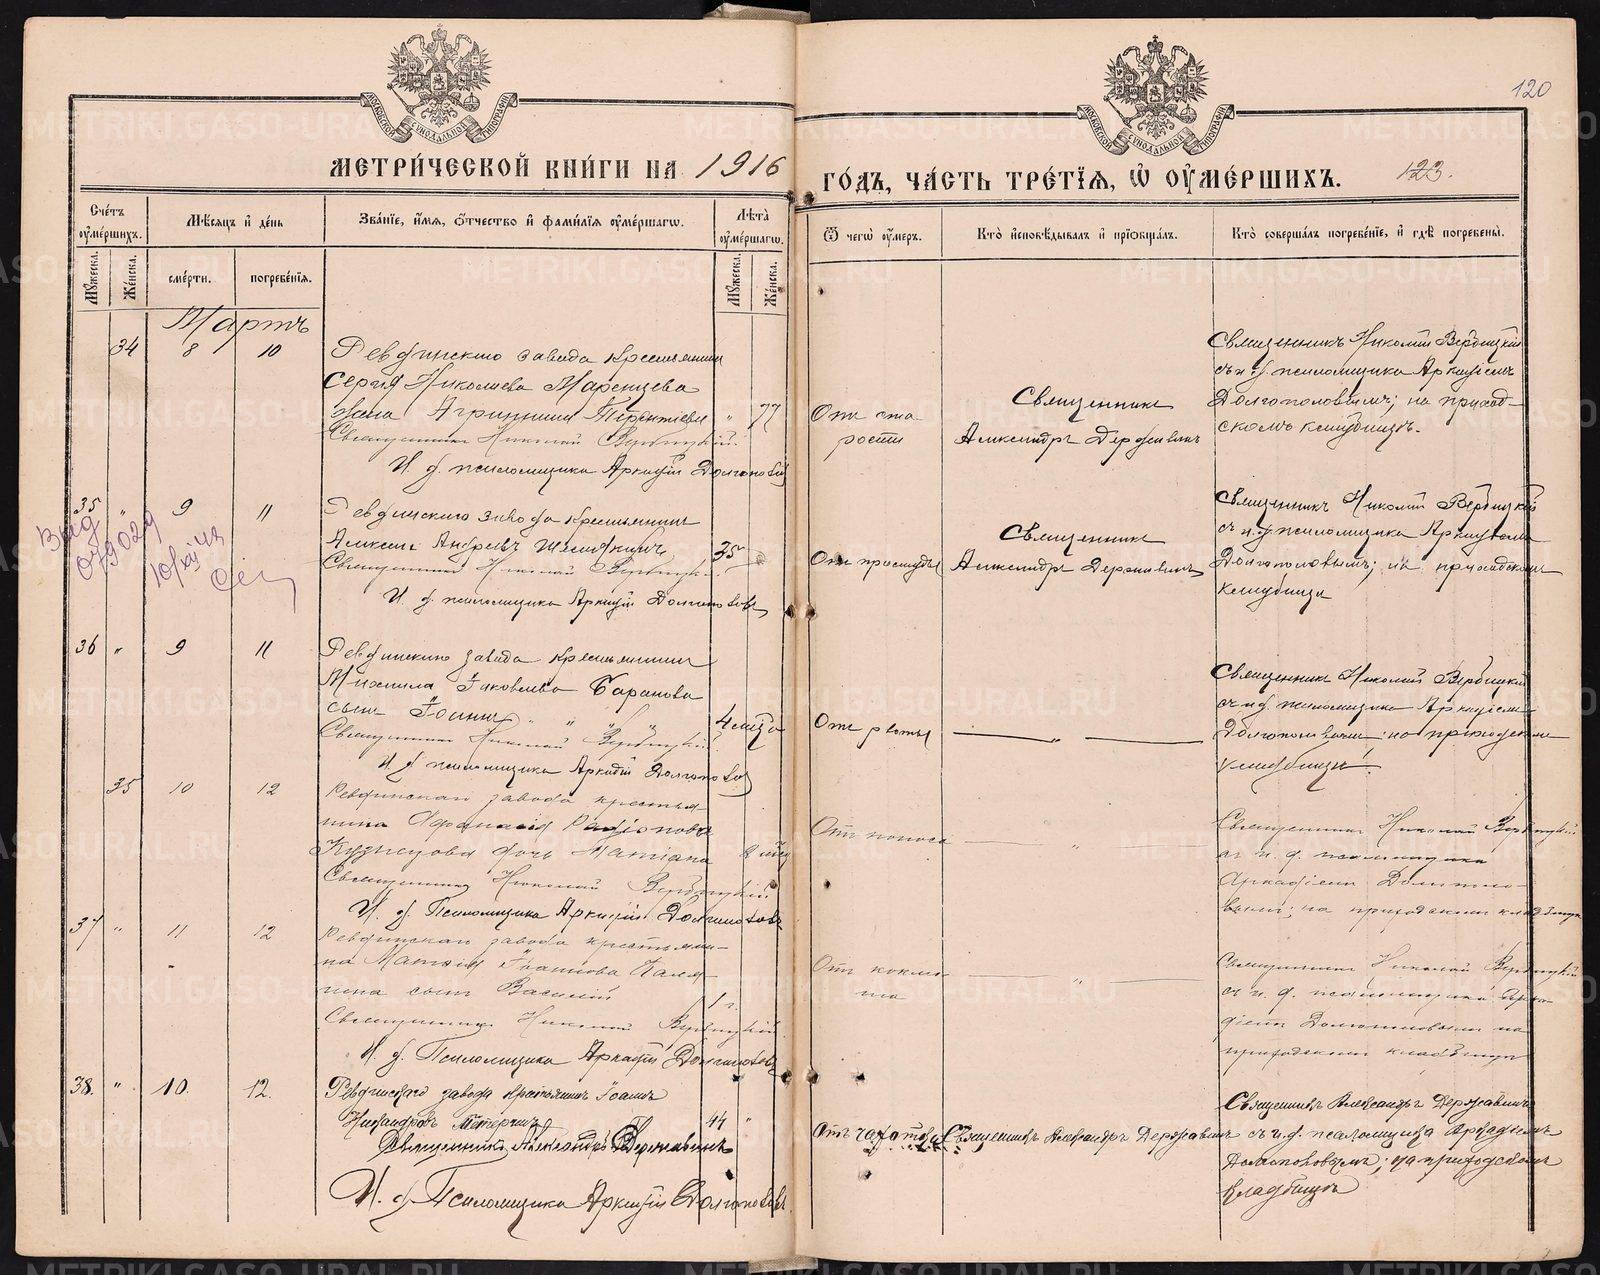 120
МОСКОВСКОЙ СѴНОДАЛЬНОЙ ТИПОГРАФІИ
МОСКОВСКОЙ СѴНОДАЛЬНОЙ ТИПОГРАФІИ
МЕТРИ́ЧЕСКОЙ КНИ́ГИ НА 1916
ГО́ДЪ, ЧА́СТЬ ТРЕ́ТІѦ, Ѡ҆ ОУ҆МЕ́РШИХЪ. 123.
Сче́тъ оу҆ме́ршихъ.
Мѣ́сѧцъ и҆ де́нь
Зва́нїе, и҆́мѧ, ѻ҆́тчество и҆ фами́лїѧ оу҆ме́ршагѡ.
Лѣ́та оу҆ме́ршагѡ.
Ѿ чегѡ̀ оу҆́меръ.
Кто̀ и҆сповѣ́дывалъ и҆ прїѡбща́лъ.
Кто̀ соверша́лъ погребе́нїе, и҆ гдѣ̀ погребены̀.
Мꙋ́жеска.
Же́нска.
сме́рти.
погребе́нїѧ.
Мꙋ́жеска.
Же́нска.
Мартъ
34 8 10
Ревдинскаго завода крестьянина
Сергія Николаева Маренцева
жена Агрипина Терентіева " 77
Священникъ Николай Вербицкій.
И. д. псаломщика Аркадій Долгополовъ
От ста
рости
Священникъ
Александръ Державинъ
Священникъ Николай Вербицкій
съ и. д. псаломщика Аркадіемъ
Долгополовымъ; на приход-
скомъ кладбищѣ.
35 " 9 11
Ревдинскаго завода крестьянинъ
Алексѣй Андреевъ 35
Священникъ Николай Вербицкій.
И. д. псаломщика Аркадій Долгополовъ
Выд
079029
От простуды
Священникъ
Александръ Державинъ
Священникъ Николай Вербицкій
съ и. д. псаломщика Аркадіемъ
Долгополовымъ; на приходскомъ
кладбищѣ
36 " 9 11
Ревдинскаго завода крестьянина
Михаила Іаковлева Баранова
сынъ Іоаннъ " " " 4 мѣс
Священникъ Николай Вербицкій
И. д. псаломщика Аркадій Долгополовъ
От рвоты
"
Священникъ Николай Вербицкій
съ и. д. псаломщика Аркадіемъ
Долгополовымъ; на приходскомъ
кладбищѣ.
35 10 12
Ревдинскаго завода крестья-
нина Афанасія Родіонова
Кузнецова дочь Матрона
Священникъ Николай Вербицкій
И. д. Псаломщика Аркадій Долгополовъ
Отъ поноса
"
Священникъ Николай Вербицкій
съ и. д. псаломщика
Аркадіемъ Долгополо-
вымъ; на приходскомъ кладбищѣ
37 " 11 12
Ревдинскаго завода крестьяни-
на Матвѣя Іоаннова
сынъ Василій 1 г.
Священникъ Николай Вербицкій
И. д. Псаломщика Аркадій Долгополовъ
Отъ коклю
ша
"
Священникъ Николай Вербицкій
съ и. д. псаломщика Арка-
діемъ Долгополовымъ на
приходскомъ кладбищѣ
38. " 10. 12.
Ревдинскаго завода крестьянинъ Іоаннъ
Никандровъ 44 "
Священникъ Александръ Державинъ
И. д. Псаломщика Аркадій Долгополовъ
Отъ чахотки
Священникъ Александръ Державинъ
Священникъ Александръ Державинъ
съ и. д. псаломщика Аркадіемъ
Долгополовымъ; на приходскомъ
кладбищѣ
METRIKI.GASO-URAL.RU